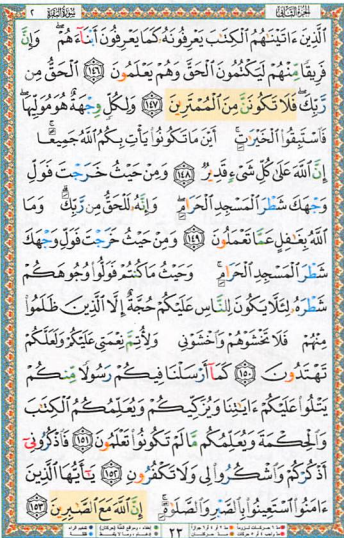 الجزء الثاني ٢ سورة البقرة
الَّذِينَ ءَاتَيْنَٰهُمُ الْكِتَٰبَ يَعْرِفُونَهُۥ كَمَا يَعْرِفُونَ أَبْنَآءَهُمْ ۖ وَإِنَّ
فَرِيقًا مِّنْهُمْ لَيَكْتُمُونَ الْحَقَّ وَهُمْ يَعْلَمُونَ ١٤٦ الْحَقُّ مِن
رَّبِّكَ ۖ فَلَا تَكُونَنَّ مِنَ الْمُمْتَرِينَ ١٤٧ وَلِكُلٍّ وِجْهَةٌ هُوَ مُوَلِّيهَا ۖ
فَاسْتَبِقُوا۟ الْخَيْرَٰتِ ۚ أَيْنَ مَا تَكُونُوا۟ يَأْتِ بِكُمُ اللَّهُ جَمِيعًا ۚ
إِنَّ اللَّهَ عَلَىٰ كُلِّ شَىْءٍ قَدِيرٌ ١٤٨ وَمِنْ حَيْثُ خَرَجْتَ فَوَلِّ
وَجْهَكَ شَطْرَ الْمَسْجِدِ الْحَرَامِ ۖ وَإِنَّهُۥ لَلْحَقُّ مِن رَّبِّكَ ۗ وَمَا
اللَّهُ بِغَٰفِلٍ عَمَّا تَعْمَلُونَ ١٤٩ وَمِنْ حَيْثُ خَرَجْتَ فَوَلِّ وَجْهَكَ
شَطْرَ الْمَسْجِدِ الْحَرَامِ ۚ وَحَيْثُ مَا كُنتُمْ فَوَلُّوا۟ وُجُوهَكُمْ
شَطْرَهُۥ لِئَلَّا يَكُونَ لِلنَّاسِ عَلَيْكُمْ حُجَّةٌ إِلَّا الَّذِينَ ظَلَمُوا۟
مِنْهُمْ فَلَا تَخْشَوْهُمْ وَاخْشَوْنِى وَلِأُتِمَّ نِعْمَتِى عَلَيْكُمْ وَلَعَلَّكُمْ
تَهْتَدُونَ ١٥٠ كَمَآ أَرْسَلْنَا فِيكُمْ رَسُولًا مِّنكُمْ
يَتْلُوا۟ عَلَيْكُمْ ءَايَٰتِنَا وَيُزَكِّيكُمْ وَيُعَلِّمُكُمُ الْكِتَٰبَ
وَالْحِكْمَةَ وَيُعَلِّمُكُم مَّا لَمْ تَكُونُوا۟ تَعْلَمُونَ ١٥١ فَاذْكُرُونِىٓ
أَذْكُرْكُمْ وَاشْكُرُوا۟ لِى وَلَا تَكْفُرُونِ ١٥٢ يَٰٓأَيُّهَا الَّذِينَ
ءَامَنُوا۟ اسْتَعِينُوا۟ بِالصَّبْرِ وَالصَّلَوٰةِ ۚ إِنَّ اللَّهَ مَعَ الصَّٰبِرِينَ ١٥٣
٢٣